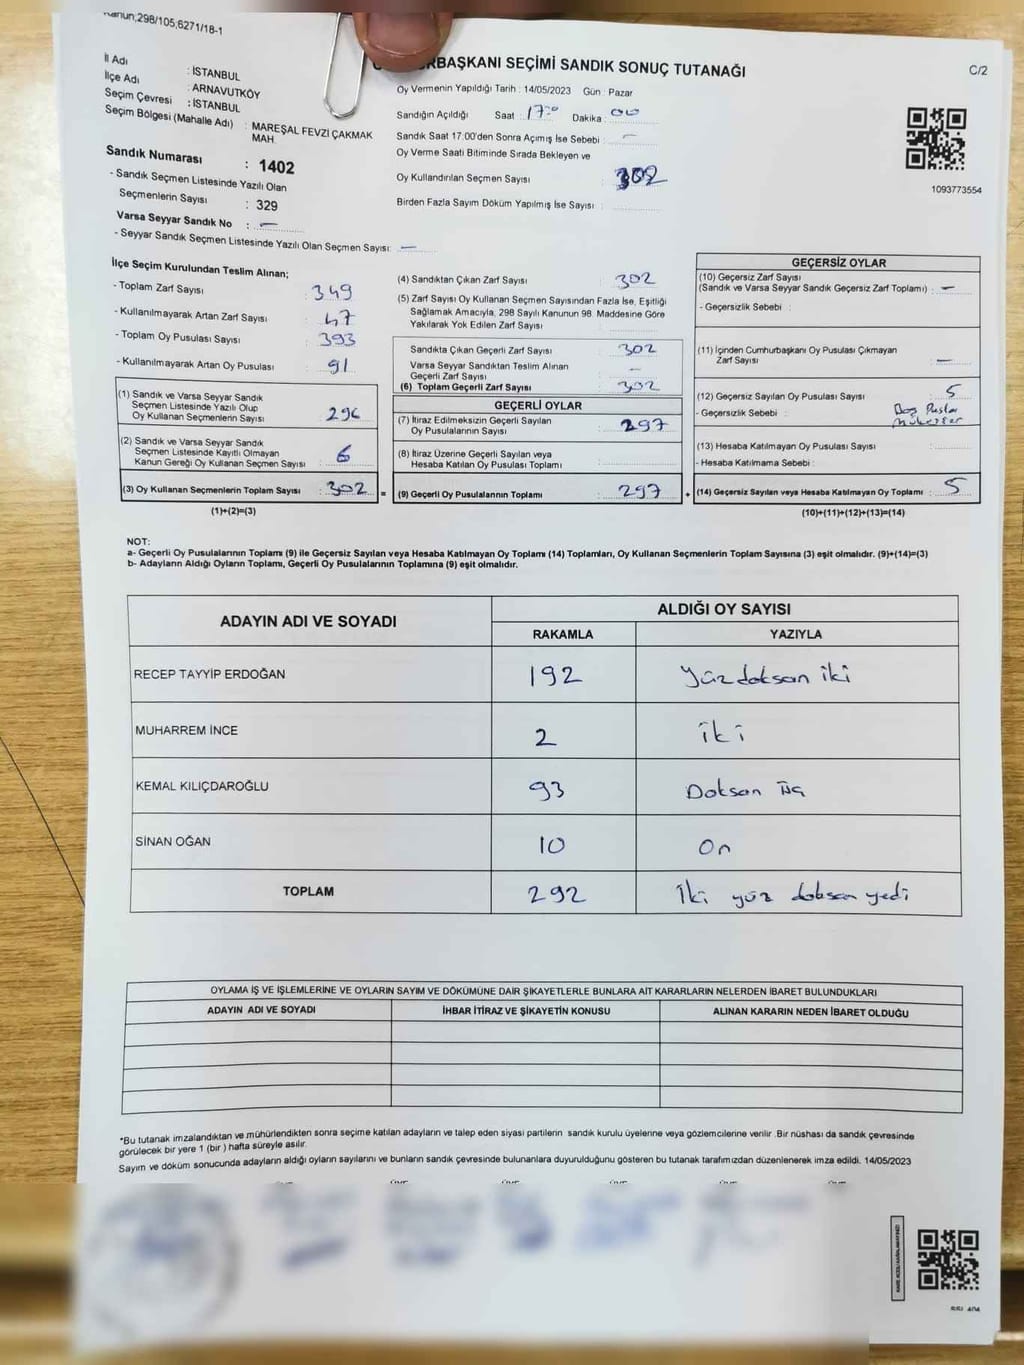 Kanun;298/105,6271/18-1
BAŞKANI SEÇİMİ SANDIK SONUÇ TUTANAĞI
C/2
İl Adı : İSTANBUL
İlçe Adı : ARNAVUTKÖY
Seçim Çevresi : İSTANBUL
Seçim Bölgesi (Mahalle Adı) : MAREŞAL FEVZİ ÇAKMAK
MAH.
Sandık Numarası : 1402
- Sandık Seçmen Listesinde Yazılı Olan
Seçmenlerin Sayısı : 329
Varsa Seyyar Sandık No : —
- Seyyar Sandık Seçmen Listesinde Yazılı Olan Seçmen Sayısı: —
Oy Vermenin Yapıldığı Tarih : 14/05/2023 Gün : Pazar
Sandığın Açıldığı Saat : 17:00 Dakika : 00
Sandık Saat 17:00'den Sonra Açımış İse Sebebi : —
Oy Verme Saati Bitiminde Sırada Bekleyen ve
Oy Kullandırılan Seçmen Sayısı : 302
Birden Fazla Sayım Döküm Yapılmış İse Sayısı :
1093773554
İlçe Seçim Kurulundan Teslim Alınan;
- Toplam Zarf Sayısı : 349
- Kullanılmayarak Artan Zarf Sayısı : 47
- Toplam Oy Pusulası Sayısı : 393
- Kullanılmayarak Artan Oy Pusulası : 91
(1) Sandık ve Varsa Seyyar Sandık
Seçmen Listesinde Yazılı Olup
Oy Kullanan Seçmenlerin Sayısı : 296
(2) Sandık ve Varsa Seyyar Sandık
Seçmen Listesinde Kayıtlı Olmayan
Kanun Gereği Oy Kullanan Seçmen Sayısı : 6
(3) Oy Kullanan Seçmenlerin Toplam Sayısı : 302
(1)+(2)=(3)
(4) Sandıktan Çıkan Zarf Sayısı : 302
(5) Zarf Sayısı Oy Kullanan Seçmen Sayısından Fazla İse, Eşitliği
Sağlamak Amacıyla, 298 Sayılı Kanunun 98. Maddesine Göre
Yakılarak Yok Edilen Zarf Sayısı :
Sandıkta Çıkan Geçerli Zarf Sayısı : 302
Varsa Seyyar Sandıktan Teslim Alınan
Geçerli Zarf Sayısı : —
(6) Toplam Geçerli Zarf Sayısı : 302
GEÇERLİ OYLAR
(7) İtiraz Edilmeksizin Geçerli Sayılan
Oy Pusulalarının Sayısı : 297
(8) İtiraz Üzerine Geçerli Sayılan veya
Hesaba Katılan Oy Pusulası Toplamı :
(9) Geçerli Oy Pusulalarının Toplamı : 297
GEÇERSİZ OYLAR
(10) Geçersiz Zarf Sayısı
(Sandık ve Varsa Seyyar Sandık Geçersiz Zarf Toplamı) : —
- Geçersizlik Sebebi :
(11) İçinden Cumhurbaşkanı Oy Pusulası Çıkmayan
Zarf Sayısı : —
(12) Geçersiz Sayılan Oy Pusulası Sayısı : 5
- Geçersizlik Sebebi :
(13) Hesaba Katılmayan Oy Pusulası Sayısı :
- Hesaba Katılmama Sebebi :
(14) Geçersiz Sayılan veya Hesaba Katılmayan Oy Toplamı : 5
(10)+(11)+(12)+(13)=(14)
NOT:
a- Geçerli Oy Pusulalarının Toplamı (9) ile Geçersiz Sayılan veya Hesaba Katılmayan Oy Toplamı (14) Toplamları, Oy Kullanan Seçmenlerin Toplam Sayısına (3) eşit olmalıdır. (9)+(14)=(3)
b- Adayların Aldığı Oyların Toplamı, Geçerli Oy Pusulalarının Toplamına (9) eşit olmalıdır.
ADAYIN ADI VE SOYADI
ALDIĞI OY SAYISI
RAKAMLA YAZIYLA
RECEP TAYYİP ERDOĞAN 192 Yüzdoksan iki
MUHARREM İNCE 2 iki
KEMAL KILIÇDAROĞLU 93 Doksan üç
SİNAN OĞAN 10 On
TOPLAM 292 İki yüz doksan yedi
OYLAMA İŞ VE İŞLEMLERİNE VE OYLARIN SAYIM VE DÖKÜMÜNE DAİR ŞİKAYETLERLE BUNLARA AİT KARARLARIN NELERDEN İBARET BULUNDUKLARI
ADAYIN ADI VE SOYADI İHBAR İTİRAZ VE ŞİKAYETİN KONUSU ALINAN KARARIN NEDEN İBARET OLDUĞU
*Bu tutanak imzalandıktan ve mühürlendikten sonra seçime katılan adayların ve talep eden siyasi partilerin sandık kurulu üyelerine veya gözlemcilerine verilir .Bir nüshası da sandık çevresinde
görülecek bir yere 1 (bir ) hafta süreyle asılır.
Sayım ve döküm sonucunda adayların aldığı oyların sayılarını ve bunların sandık çevresinde bulunanlara duyurulduğunu gösteren bu tutanak tarafımızdan düzenlenerek imza edildi. 14/05/2023